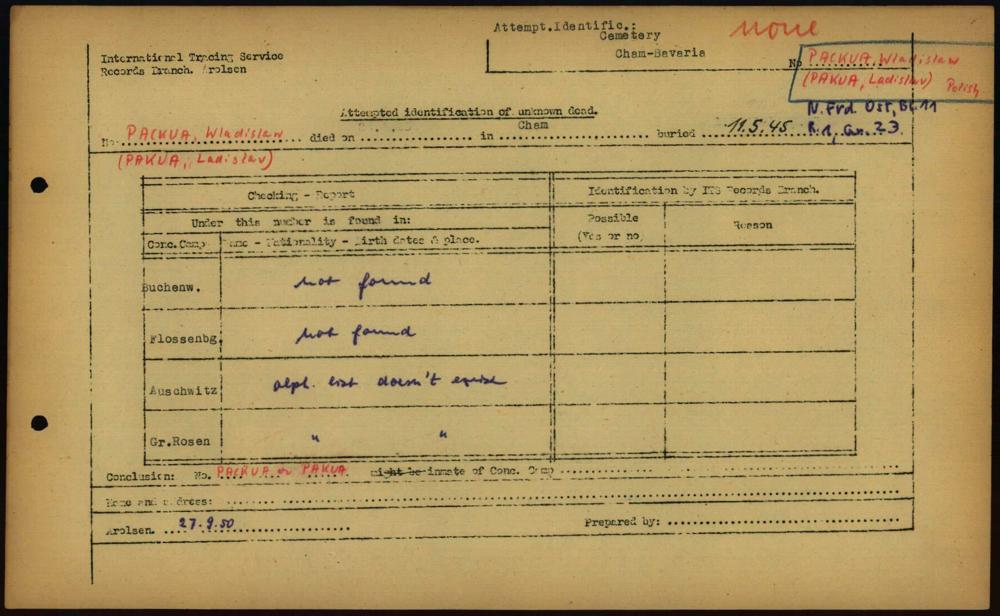 Attempt.Identific.: none
Cemetery
Cham-Bavaria
International Tracing Service
Records Branch. Arolsen
No PACKUA, Wladislaw
(PAKUA, Ladislav) Polish
N. Frd. Ost, Bl. 11
R. 1, Gr. 23.
Attempted identification of unknown dead.
No. PACKUA, Wladislaw died on ........ in Cham buried 11.5.45
(PAKUA, Ladislav)
Checking - Report
Identification by ITS Records Branch.
Under this number is found in:
Possible
(Yes or no)
Reason
Conc.Camp
Name - Nationality - Birth dates & place.
Buchenw. not found
Flossenbg. not found
Auschwitz alph. list doesn't exist
Gr.Rosen " "
Conclusion: No. PACKUA or PAKUA might be inmate of Conc. Camp ........
Name and address: ........
Arolsen. 27.9.50 ........ Prepared by: ........